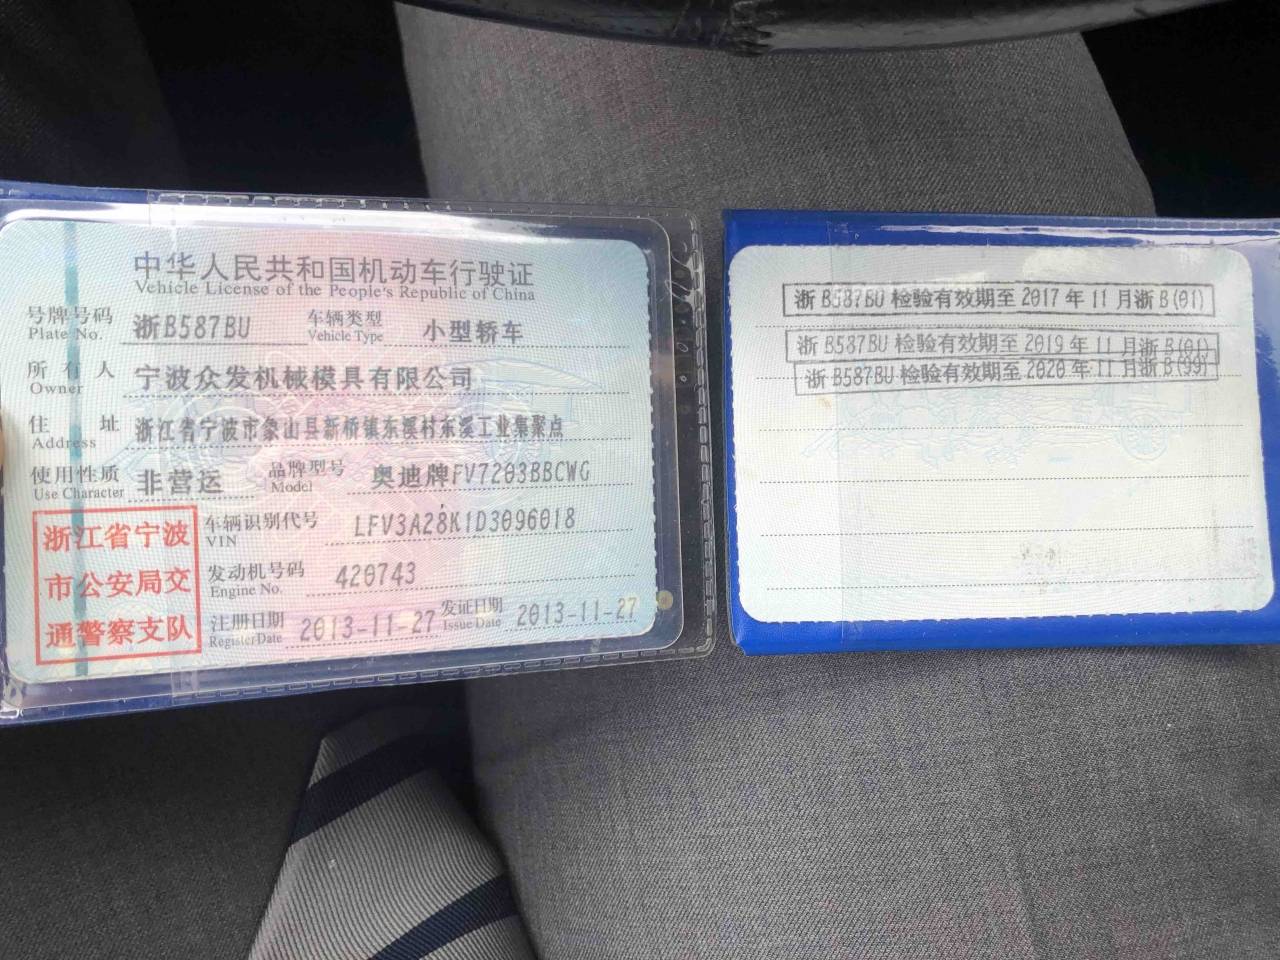 中华人民共和国机动车行驶证
Vehicle License of the People's Republic of China
号牌号码 浙B587BU 车辆类型 小型轿车
Plate No. Vehicle Type
所有人 宁波众发机械模具有限公司
Owner
住址 浙江省宁波市象山县新桥镇东溪村东溪工业集聚点
Address
使用性质 非营运 品牌型号 奥迪牌FV7203BBCWG
Use Character Model
浙江省宁波
市公安局交
通警察支队
车辆识别代号 LFV3A28K1D3096018
VIN
发动机号码 420743
Engine No.
注册日期 2013-11-27 发证日期 2013-11-27
Register Date Issue Date
浙B587BU检验有效期至2017年11月浙B(01)
浙B587BU检验有效期至2019年11月浙B(01)
浙B587BU检验有效期至2020年11月浙B(99)